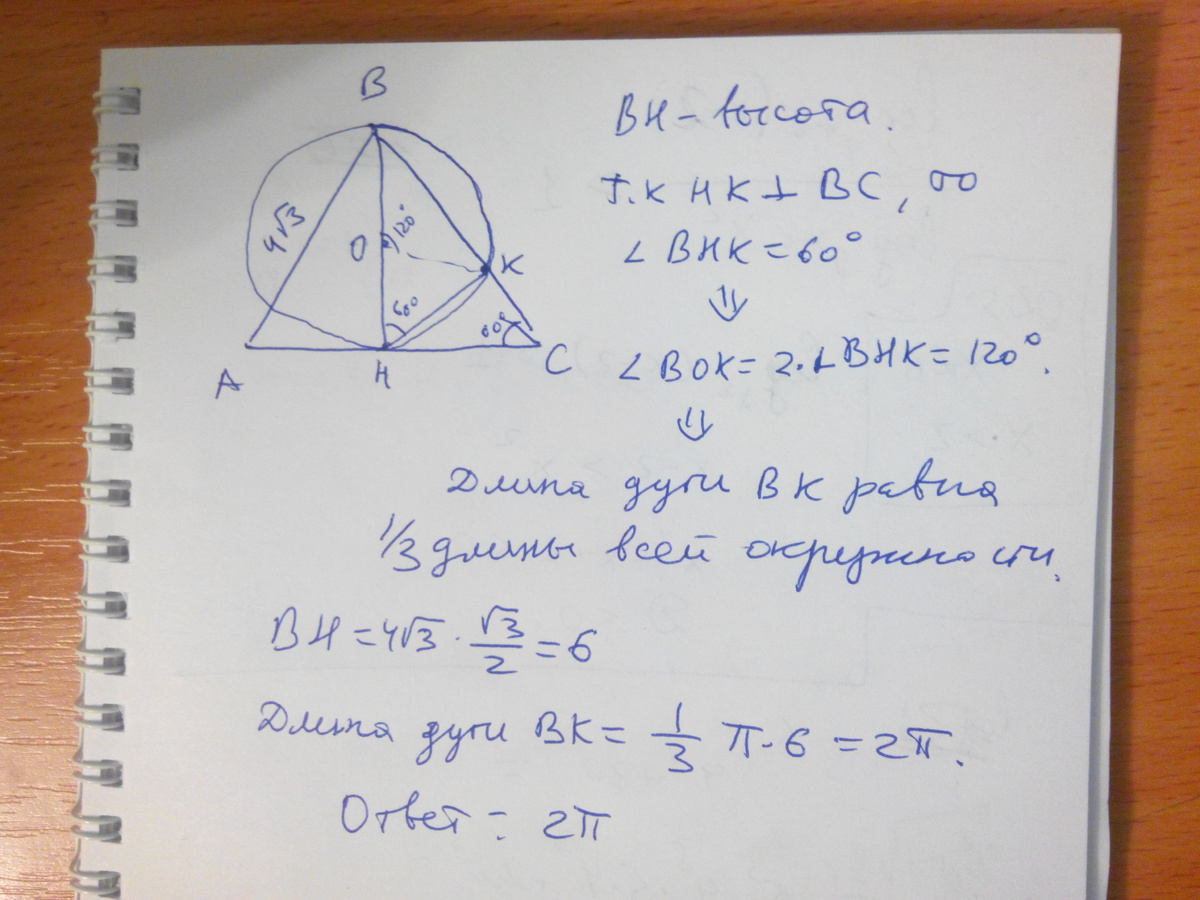 B
4√3
O
120°
K
60
60°
A
H
C
BH – высота.
Т.к HK ⊥ BC, то
∠ BHK = 60°
⇓
∠ BOK = 2·∠BHK = 120°.
⇓
Длина дуги BK равна
1/3 длины всей окружности.
BH = 4√3 · √3/2 = 6
Длина дуги BK = 1/3 π·6 = 2π.
Ответ: 2π